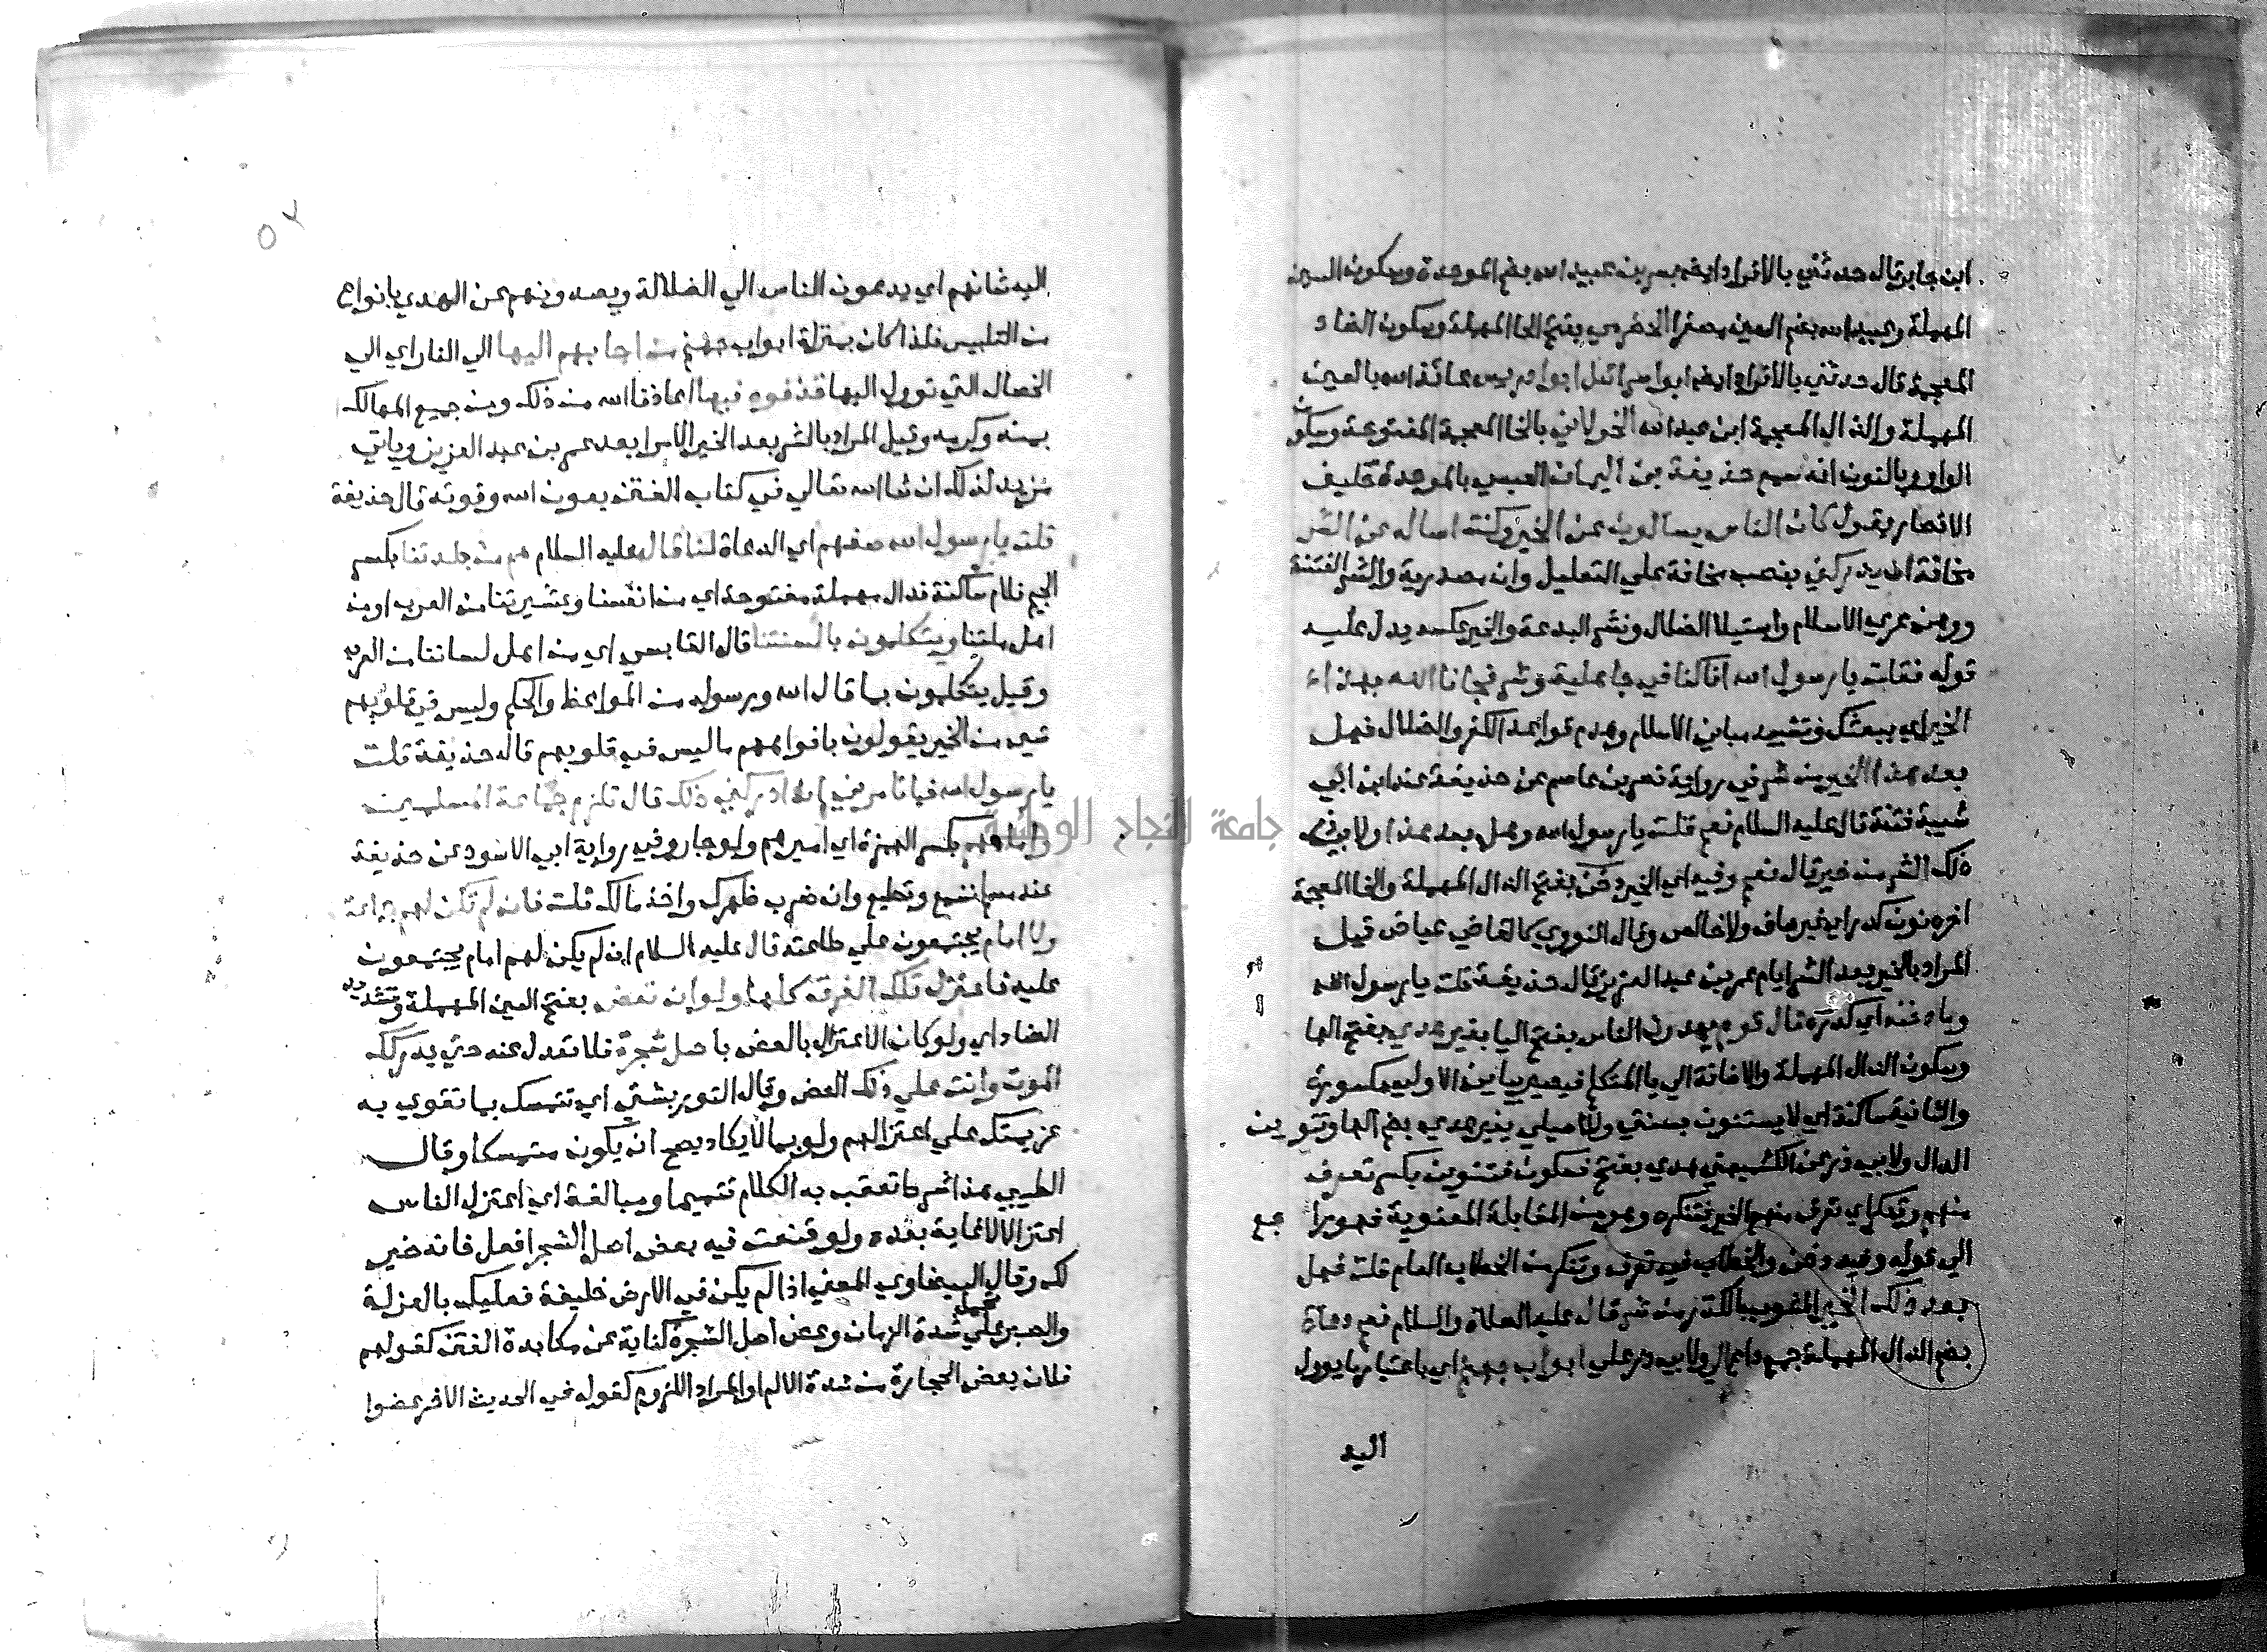 ابن جابر قال حدثني بالافراد ايضا بسر بن عبيد الله بضم الموحدة وسكون السين
المهملة وعبيد الله بضم العين مصغرا الحضرمي بفتح الحا المهملة وسكون الضاد
المعجمة قال حدثني بالافراد ايضا ابو ادريس عائذ الله بالعين
المهملة والذال المعجمة ابن عبد الله الخولاني بالخا المعجمة المفتوحة وسكون
الواو وبالنون انه سمع حذيفة بن اليمان العبسي بالموحدة حليف
الانصار يقول كان الناس يسالون عن الخير وكنت اساله عن الشر
مخافة ان يدركني بنصب مخافة علي التعليل وان مصدرية والشر الفتنة
ووهن عري الاسلام واستيلا الضلال ونشر البدعة والخير عكسه يدل عليه
قوله فقلت يا رسول الله انا كنا في جاهلية وشر فجانا الله بهذا
الخير اي ببعثك وتشييد مباني الاسلام وهدم قواعد الكفر والضلال فهل
بعد هذا الخير من شر في رواية نصر بن عاصم عن حذيفة عند ابن ابي
شيبة فتنة قال عليه السلام نعم قلت يا رسول الله وهل بعد هذا ولابي ذر
ذلك الشر من خير قال نعم وفيه اي الخير دخن بفتح الدال المهملة والخا المعجمة
اخره نون كدر اي غير صاف ولا خالص وقال النووي كالقاضي عياض قيل
المراد بالخير بعد الشر ايام عمر بن عبد العزيز قال حذيفة قلت يا رسول الله
وما دخنه اي كدره قال قوم يهدون الناس بفتح اليا بغير هدي بفتح الها
وسكون الدال المهملة والاضافة الي يا المتكلم فيصير بيا ين الاولي مكسورة
والثانية ساكنة اي لا يستنون بسنتي وللاصيلي بغير هدي بضم الها وتنوين
الدال ولابي ذر عن الكشميهني هدي بفتح فسكون فتنوين بكسر تعرف
منهم وتنكر اي تعرف منهم الخير فتنكره وهو من المقابلة المعنوية فهو را جع
الي قوله وفيه دخن والخطاب في تعرف وتنكر من الخطاب العام قلت فهل
بعد ذلك الخير المشوب بالكدر من شر قال عليه الصلاة والسلام نعم دعاة
بضم الدال المهملة جمع داع ولابي ذر علي ابواب جهنم اي باعتبار ما يوول
اليه
٥٢
اليه شانهم اي يدعون الناس الي الضلالة ويصدونهم عن الهدي بانواع
من التلبيس فلذا كان بمنزلة ابواب جهنم من اجابهم اليها الي النار اي الي
الخصال التي توول اليها قذفوه فيها اعاذنا الله من ذلك ومن جميع المهالك
بمنه وكرمه وقيل المراد بالشر بعد الخير الامرا بعد عمر بن عبد العزيز وياتي
مزيد لذلك ان شا الله تعالي في كتاب الفتن بعون الله وقوته قال حذيفة
قلت يا رسول الله صفهم اي الدعاة لنا قال عليه السلام هم من جلدتنا بكسر
الجيم فلام ساكنة فدال مهملة مفتوحة اي من انفسنا وعشيرتنا من العرب او من
اهل ملتنا ويتكلمون بالسنتنا قال القابسي اي من اهل لساننا من العرب
وقيل يتكلمون بما قال الله ورسوله من المواعظ والحكم وليس في قلوبهم
شي من الخير يقولون بافواههم ما ليس في قلوبهم قال حذيفة قلت
يا رسول الله فما تامرني ان ادركني ذلك قال تلزم جماعة المسلمين
وامامهم بكسر الهمزة اي اميرهم ولو جار وفي رواية ابي الاسود عن حذيفة
عند مسلم تسمع وتطيع وان ضرب ظهرك واخذ مالك قلت فان لم تكن لهم جماعة
ولا امام يجتمعون علي طاعته قال عليه السلام ان لم يكن لهم امام يجتمعون
عليه فاعتزل تلك الفرق كلها ولو ان تعض بفتح العين المهملة وتشديد
الضاد اي ولو كان الاعتزال بالعض باصل شجرة فلا تعدل عنه حتي يدركك
الموت وانت علي ذلك العض وقال التوربشتي اي تتمسك بما تقوي به
عزيمتك علي اعتزالهم ولو بما لا يكاد يصح ان يكون متمسكا وقال
الطيبي هذا شرط تعقب به الكلام تتميما ومبالغة اي اعتزل الناس
اعتزالا لا غاية بعده ولو قنعت فيه بعض اصل الشجر افعل فانه خير
لك وقال البيضاوي المعني اذا لم يكن في الارض خليفة فعليك بالعزلة
والصبر علي تحمل شدة الزمان وعض اصل الشجرة كناية عن مكابدة الفتن كقولهم
فلان يعض الحجارة من شدة الالم او المراد اللزوم كقوله في الحديث الاخر عضوا